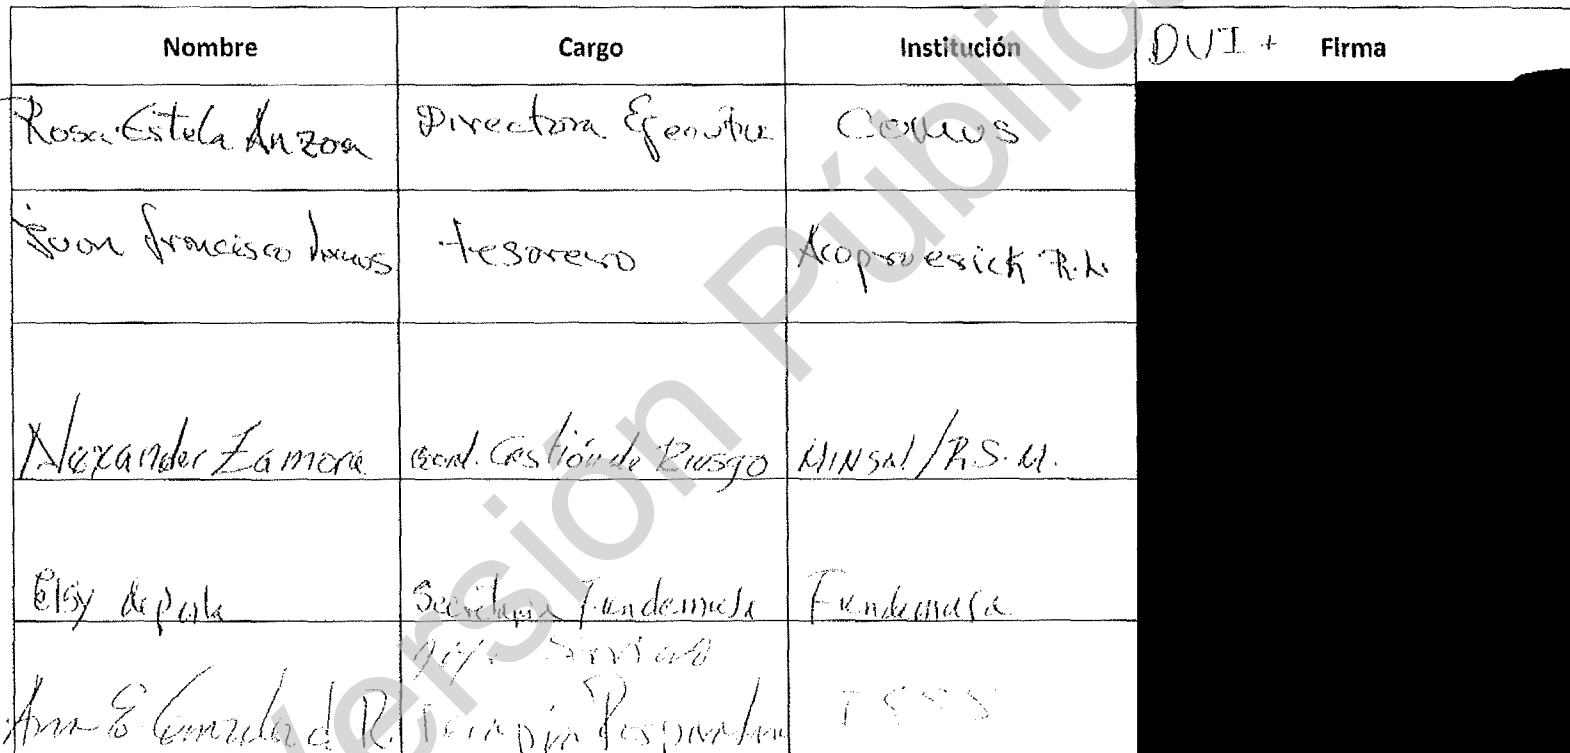 Nombre Cargo Institución DUI + Firma
Rosa Estela Anzora Directora Ejecutiva Comus
Juan francisco tesorero Acoproerick R.L.
Alexander Zamora Coord. Gestión de Riesgo MINSAL/R.S.M.
Elsy de Secretaria Fundemusa Fundemusa
Jefe Servicio
Ana E. González de R. Terapia Respiratoria ISSS
Versión Pública